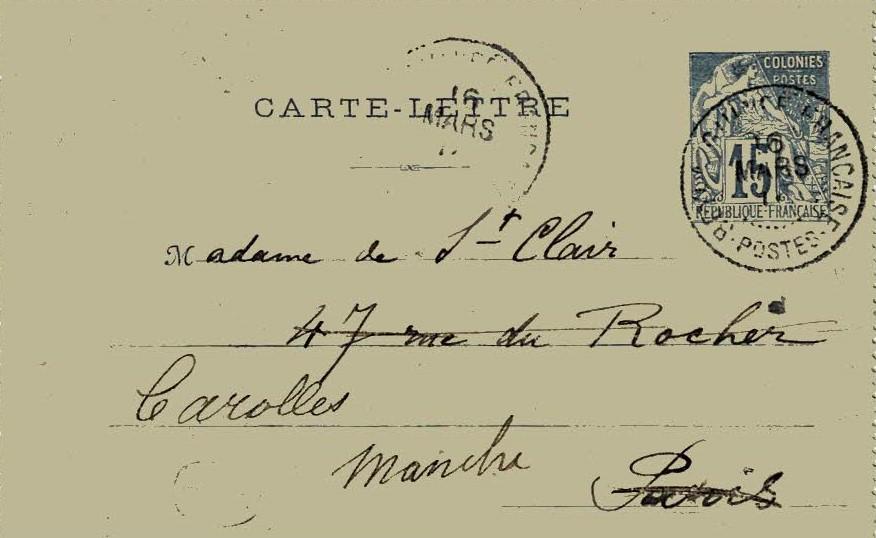 COLONIES
POSTES
CARTE-LETTRE
16
MARS
15
REPUBLIQUE-FRANÇAISE
FRANCAISE
16
MARS
POSTES
Madame de St Clair
47 rue du Rocher
Carolles
Manche
Paris